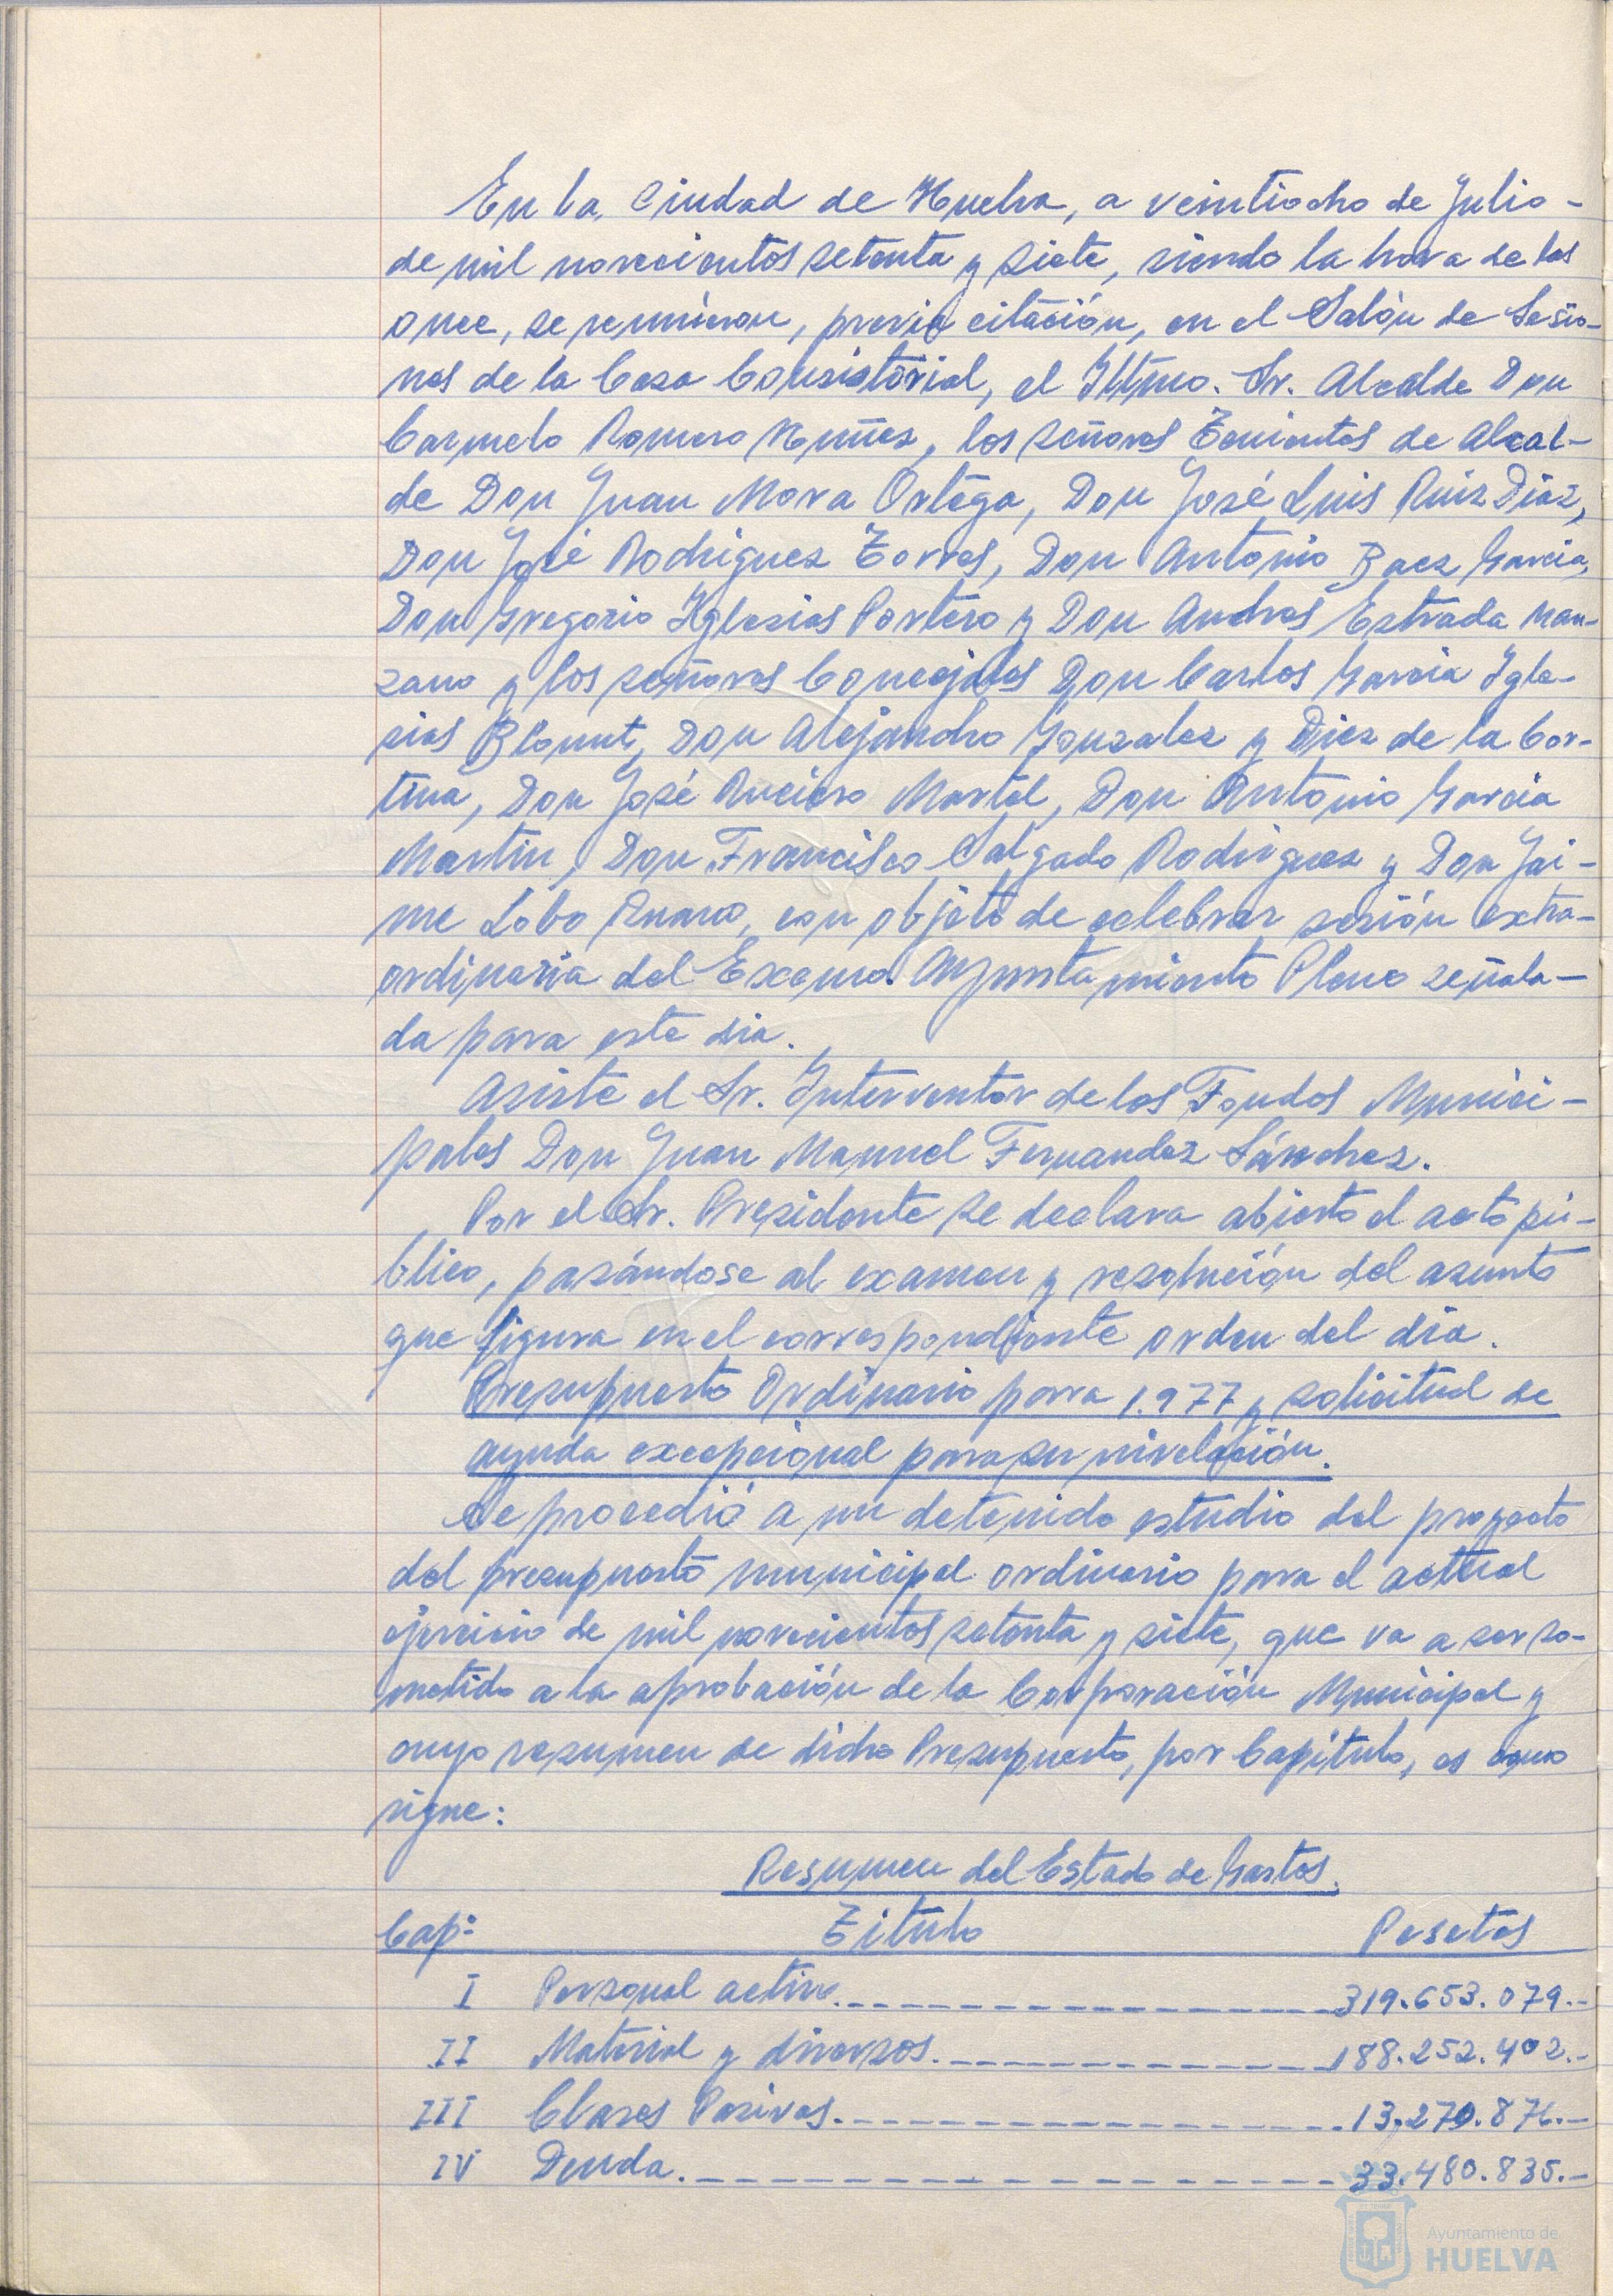 En la Ciudad de Huelva, a veintiocho de Julio -
de mil novecientos setenta y siete, siendo la hora de las
once, se reunieron, previa citación, en el Salón de Sesio-
nes de la Casa Consistorial, el Iltmo. Sr. Alcalde Don
Carmelo Romero Nuñez, los señores Tenientes de Alcal-
de Don Juan Mora Ortega, Don José Luis Ruiz Diaz,
Don José Rodriguez Torres, Don Antonio Baez Garcia,
Don Gregorio Iglesias Portero y Don Andres Estrada Man-
zano y los señores Concejales Don Carlos Garcia Igle-
sias Blount, Don Alejandro Gonzalez y Diez de la Cor-
tina, Don José Ruciero Martel, Don Antonio Garcia
Martin, Don Francisco Salgado Rodriguez y Don Jai-
me Lobo Ruano, con objeto de celebrar sesión extra-
ordinaria del Excmo. Ayuntamiento Pleno señala-
da para este dia.
Asiste el Sr. Interventor de los Fondos Munici-
pales Don Juan Manuel Fernandez Sánchez.
Por el Sr. Presidente se declara abierto el acto pú-
blico, pasándose al examen y resolución del asunto
que figura en el correspondiente orden del dia.
Presupuesto Ordinario para 1.977 y solicitud de
ayuda excepcional para su nivelación.
Se procedió a un detenido estudio del proyecto
del presupuesto municipal ordinario para el actual
ejercicio de mil novecientos setenta y siete, que va a ser so-
metido a la aprobación de la Corporación Municipal y
cuyo resumen de dicho Presupuesto, por Capítulo, es como
sigue:
Resumen del Estado de Gastos.
Capº Titulo Pesetas
I Personal activo. 319.653.079.-
II Material y diversos. 188.252.402.-
III Clases Pasivas. 13.270.876.-
IV Deuda. 33.480.835.-
Ayuntamiento de
HUELVA